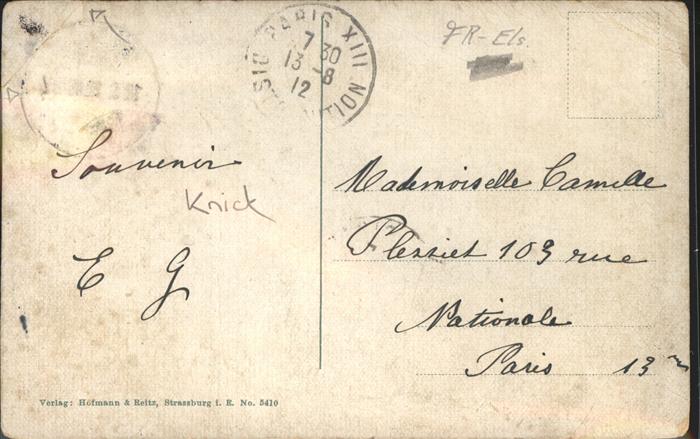 PARIS XIII
DISTRIBUTION
7 30
13 -8
12
FR-Els.
Souvenir
Knick
E G
Mademoiselle Camille
Plessiet 103 rue
Nationale
Paris 13
Verlag: Hofmann & Reitz, Strassburg i. E. No. 5410